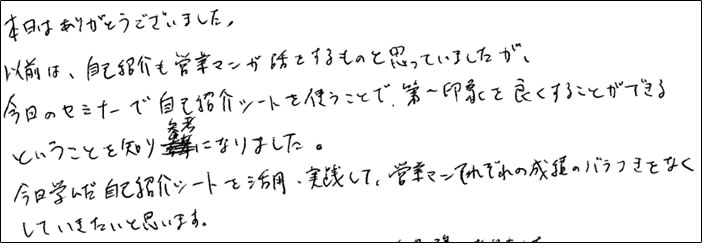 本日はありがとうございました。
以前は、自己紹介も営業マンが話をするものと思っていましたが、
今日のセミナーで自己紹介シートを使うことで、第一印象を良くすることができる
ということを知り参考になりました。
今日学んだ自己紹介シートを活用・実践して、営業マンそれぞれの成績のバラつきをなく
していきたいと思います。